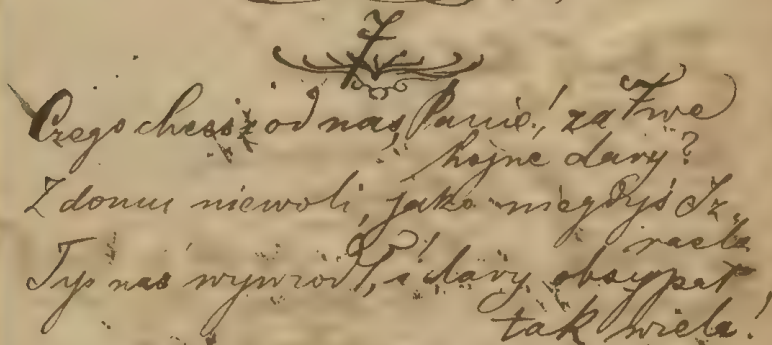 7
Czego chcesz od nas, Panie! za Twe
hojne dary?
Z domu niewoli, jako niegdyś Iz-
raela
Tyś nas wywiódł, i dary obsypał
tak wiela!